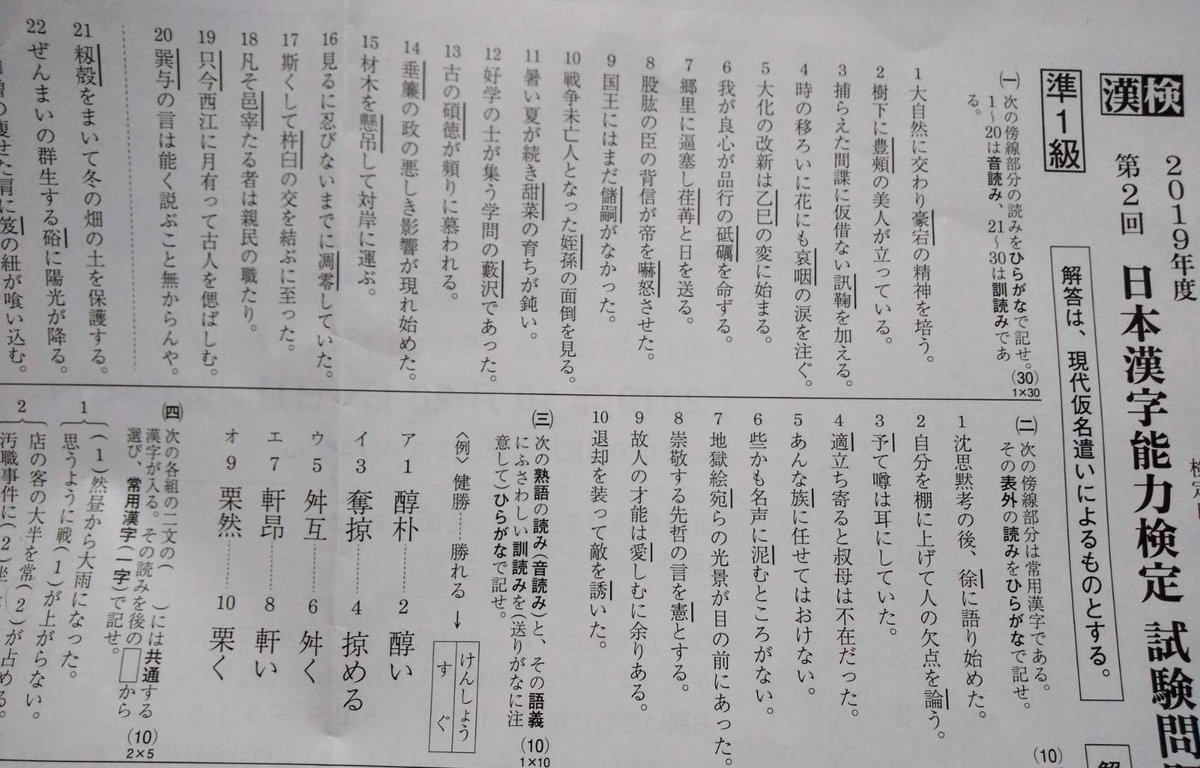 検定
漢検
2019年度
第2回 日本漢字能力検定 試験問
準1級
解答は、現代仮名遣いによるものとする。
解
㈠ 次の傍線部分の読みをひらがなで記せ。
1～20は音読み、21～30は訓読みであ
る。
(30)
1×30
1 大自然に交わり豪宕の精神を培う。
2 樹下に豊頰の美人が立っている。
3 捕らえた間諜に仮借ない訊鞠を加える。
4 時の移ろいに花にも哀咽の涙を注ぐ。
5 大化の改新は乙巳の変に始まる。
6 我が良心が品行の砥礪を命ずる。
7 郷里に逼塞し荏苒と日を送る。
8 股肱の臣の背信が帝を嚇怒させた。
9 国王にはまだ儲嗣がなかった。
10 戦争未亡人となった姪孫の面倒を見る。
11 暑い夏が続き甜菜の育ちが鈍い。
12 好学の士が集う学問の藪沢であった。
13 古の碩徳が頻りに慕われる。
14 垂簾の政の悪しき影響が現れ始めた。
15 材木を懸吊して対岸に運ぶ。
16 見るに忍びないまでに凋零していた。
17 斯くして杵臼の交を結ぶに至った。
18 凡そ邑宰たる者は親民の職たり。
19 只今西江に月有って古人を偲ばしむ。
20 巽与の言は能く説ぶこと無からんや。
21 籾殻をまいて冬の畑の土を保護する。
22 ぜんまいの群生する硲に陽光が降る。
の痩せた肩に笈の紐が喰い込む。
㈡ 次の傍線部分は常用漢字である。
その表外の読みをひらがなで記せ。
(10)
1 沈思黙考の後、徐に語り始めた。
2 自分を棚に上げて人の欠点を論う。
3 予て噂は耳にしていた。
4 適立ち寄ると叔母は不在だった。
5 あんな族に任せてはおけない。
6 些かも名声に泥むところがない。
7 地獄絵宛らの光景が目の前にあった。
8 崇敬する先哲の言を憲とする。
9 故人の才能は愛しむに余りある。
10 退却を装って敵を誘いた。
㈢ 次の熟語の読み(音読み)と、その語義
にふさわしい訓読みを(送りがなに注
意して)ひらがなで記せ。
(10)
1×10
〈例〉健勝……勝れる → けんしょう
すぐ
ア 1 醇朴……2 醇い
イ 3 奪掠……4 掠める
ウ 5 舛互……6 舛く
エ 7 軒昂……8 軒い
オ 9 栗然……10 栗く
㈣ 次の各組の二文の( )には共通する
漢字が入る。その読みを後の□から
選び、常用漢字(一字)で記せ。
(10)
2×5
1
(1)然昼から大雨になった。
思うように戦(1)が上がらない。
2
店の客の大半を常(2)が占める。
汚職事件に(2)